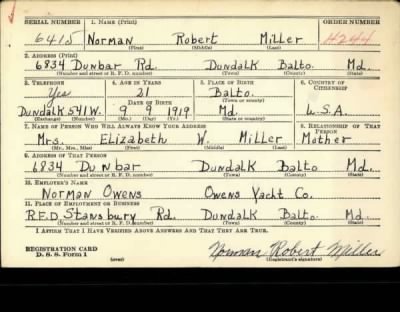 SERIAL NUMBER 1. NAME (Print) ORDER NUMBER
6415 Norman Robert Miller H244
(First) (Middle) (Last)
2. ADDRESS (Print)
6834 Dunbar Rd. Dundalk Balto. Md.
(Number and street or R. F. D. number) (Town) (County) (State)
3. TELEPHONE 4. AGE IN YEARS 5. PLACE OF BIRTH 6. COUNTRY OF CITIZENSHIP
Yes 21 Balto.
DATE OF BIRTH (Town or county)
Dundalk 541W. 9 9 1919 Md. U.S.A.
(Exchange) (Number) (Mo.) (Day) (Yr.) (State or country)
7. NAME OF PERSON WHO WILL ALWAYS KNOW YOUR ADDRESS 8. RELATIONSHIP OF THAT PERSON
Mrs. Elizabeth W. Miller Mother
(Mr., Mrs., Miss) (First) (Middle) (Last)
9. ADDRESS OF THAT PERSON
6834 Dunbar Dundalk Balto Md.
(Number and street or R. F. D. number) (Town) (County) (State)
10. EMPLOYER'S NAME
Norman Owens Owens Yacht Co.
11. PLACE OF EMPLOYMENT OR BUSINESS
R.F.D Stansbury Rd. Dundalk Balto. Md.
(Number and street or R. F. D. number) (Town) (County) (State)
I AFFIRM THAT I HAVE VERIFIED ABOVE ANSWERS AND THAT THEY ARE TRUE.
REGISTRATION CARD
D. S. S. Form 1 (over) Norman Robert Miller
(Registrant's signature)